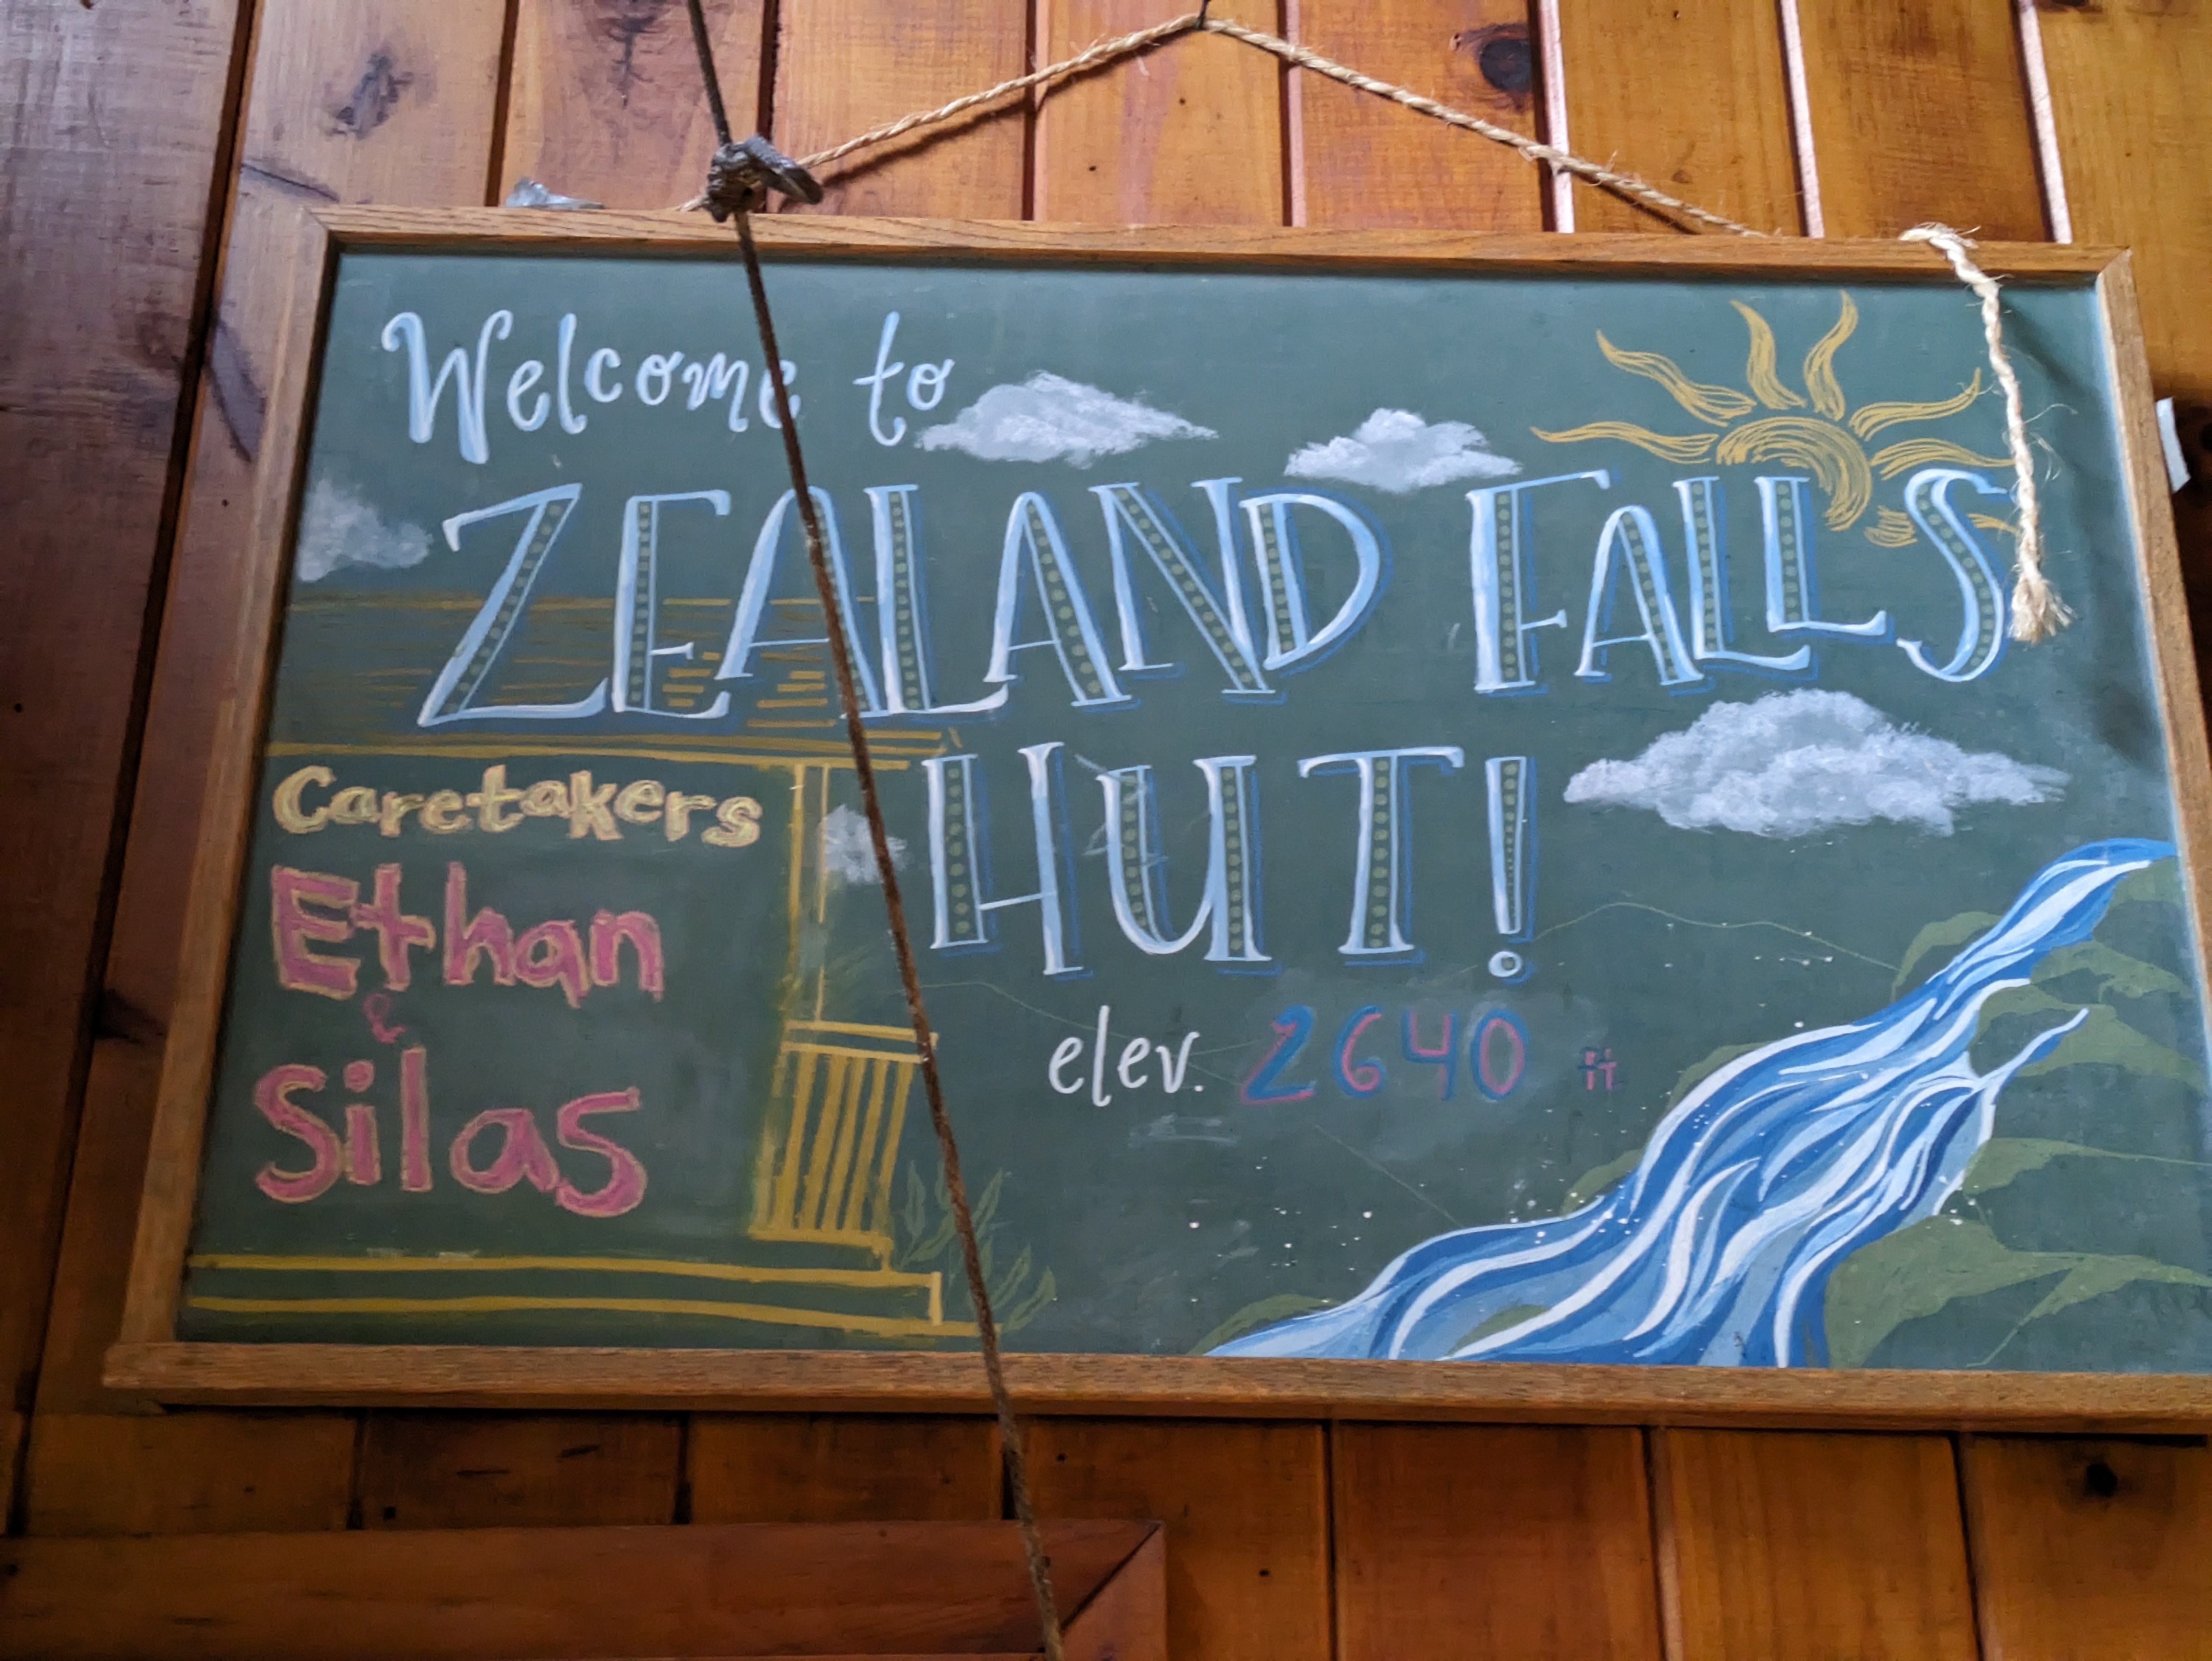 Welcome to
ZEALAND FALLS
HUT!
elev. 2640 ft
Caretakers
Ethan
&
Silas